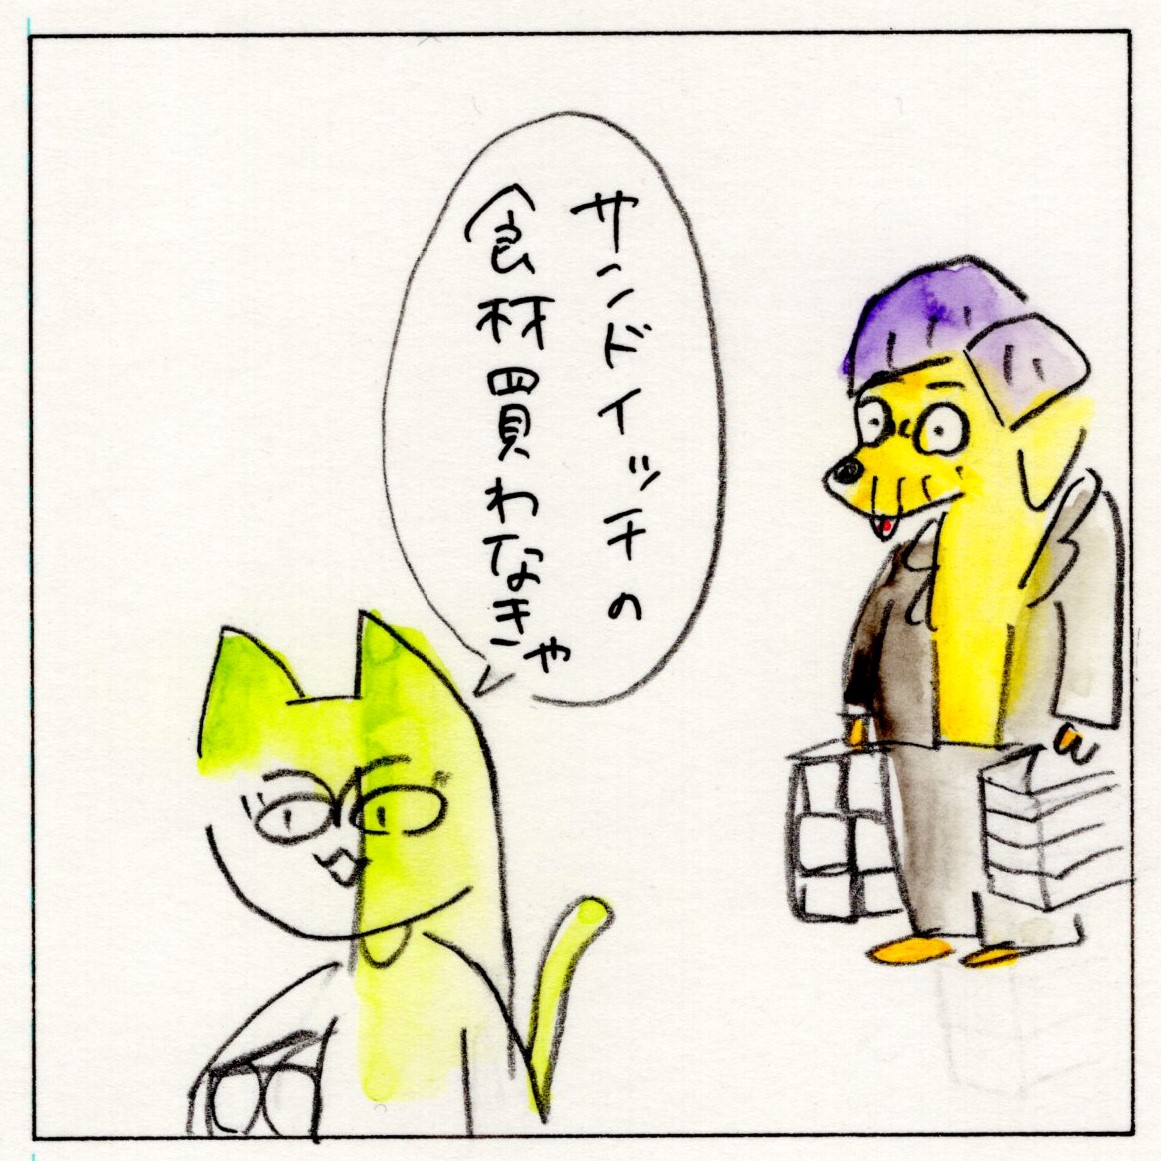 サンドイッチの
食材買わなきゃ